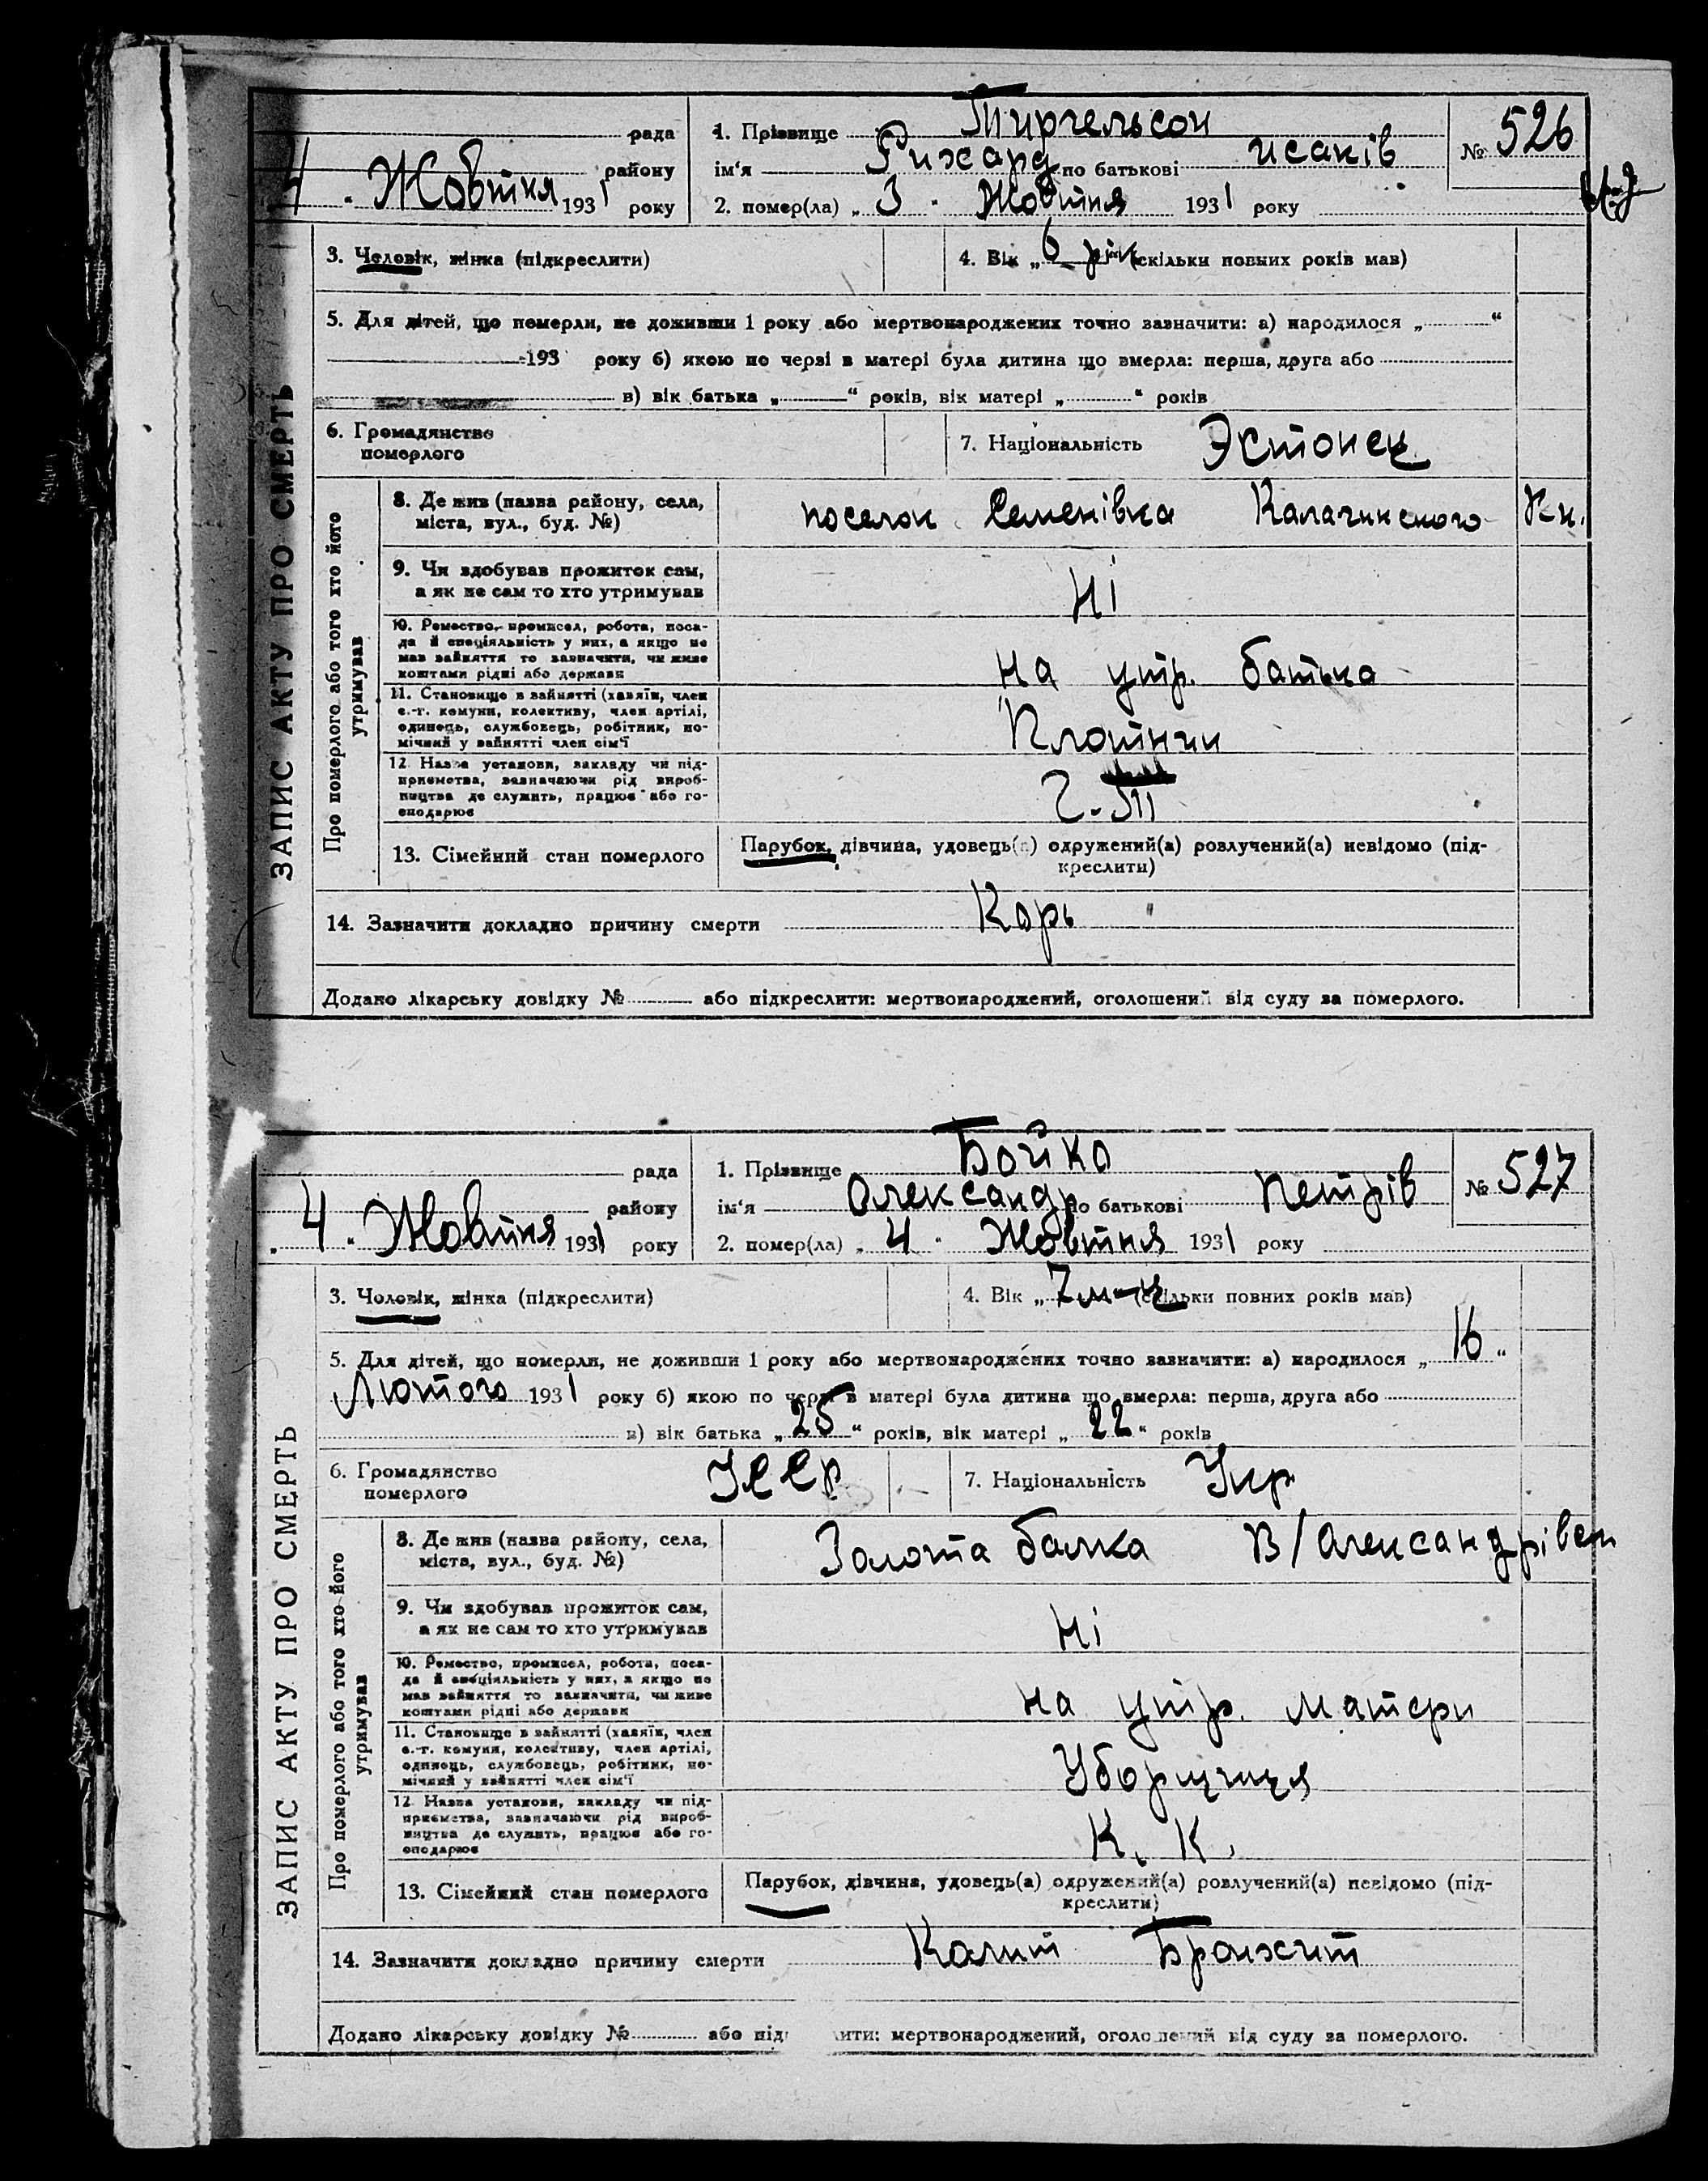 рада
1. Прізвище Тиргельсон
№ 526
району
ім'я Рихард по батькові исаків
4 " Жовтня 1931 року
2. помер(ла) " 3 " Жовтня 1931 року
3. Чоловік, жінка (підкреслити)
4. Вік " 6 рік (скільки повних років мав)
5. Для дітей, що померли, не доживши 1 року або мертвонароджених точно зазначити: а) народилося „ “
193 року б) якою по черзі в матері була дитина що вмерла: перша, друга або
в) вік батька „ “ років, вік матері „ “ років
6. Громадянство
померлого
7. Національність Эстонец
ЗАПИС АКТУ ПРО СМЕРТЬ
Про померлого або того хто його
утримував
8. Де жив (назва району, села,
міста, вул., буд. №)
поселок Семенівка Калачинского
9. Чи здобував прожиток сам,
а як не сам то хто утримував
Ні
10. Ремество, промисел, робота, поса-
да й спеціяльність у них, а якщо не
мав зайняття то зазначити, чи живе
коштами рідні або держави
на утр. батька
11. Становище в зайнятті (хазяїн, член
с.-г. комуни, колективу, член артілі,
одинець, службовець, робітник, по-
мічний у зайнятті член сім'ї
Плотник
12. Назва установи, закладу чи під-
приємства, зазначаючи рід вироб-
ництва де служить, працює або го-
сподарює
13. Сімейний стан померлого
Парубок, дівчина, удовець(а) одружений(а) розлучений(а) невідомо (під-
креслити)
14. Зазначити докладно причину смерти Корь
Додано лікарську довідку № або підкреслити: мертвонароджений, оголошений від суду за померлого.
рада
1. Прізвище Бойко
№ 527
району
ім'я Олександр по батькові Петрів
" 4 " Жовтня 1931 року
2. помер(ла) " 4 " Жовтня 1931 року
3. Чоловік, жінка (підкреслити)
4. Вік „ 7 м-ц (скільки повних років мав)
5. Для дітей, що померли, не доживши 1 року або мертвонароджених точно зазначити: а) народилося „ 16 “
Лютого 1931 року б) якою по черзі в матері була дитина що вмерла: перша, друга або
в) вік батька „ 25 “ років, вік матері „ 22 “ років
6. Громадянство
померлого
УССР
7. Національність Укр
ЗАПИС АКТУ ПРО СМЕРТЬ
Про померлого або того хто його
утримував
8. Де жив (назва району, села,
міста, вул., буд. №)
Золота балка В/Олександрівсп
9. Чи здобував прожиток сам,
а як не сам то хто утримував
Ні
10. Ремество, промисел, робота, поса-
да й спеціяльність у них, а якщо не
мав зайняття то зазначити, чи живе
коштами рідні або держави
на утр. матери
11. Становище в зайнятті (хазяїн, член
с.-г. комуни, колективу, член артілі,
одинець, службовець, робітник, по-
мічний у зайнятті член сім'ї
Уборщиця
12. Назва установи, закладу чи під-
приємства, зазначаючи рід вироб-
ництва де служить, працює або го-
сподарює
К. К.
13. Сімейний стан померлого
Парубок, дівчина, удовець(а) одружений(а) розлучений(а) невідомо (під-
креслити)
14. Зазначити докладно причину смерти Колит Бронхит
Додано лікарську довідку № або під ити: мертвонароджений, оголошений від суду за померлого.